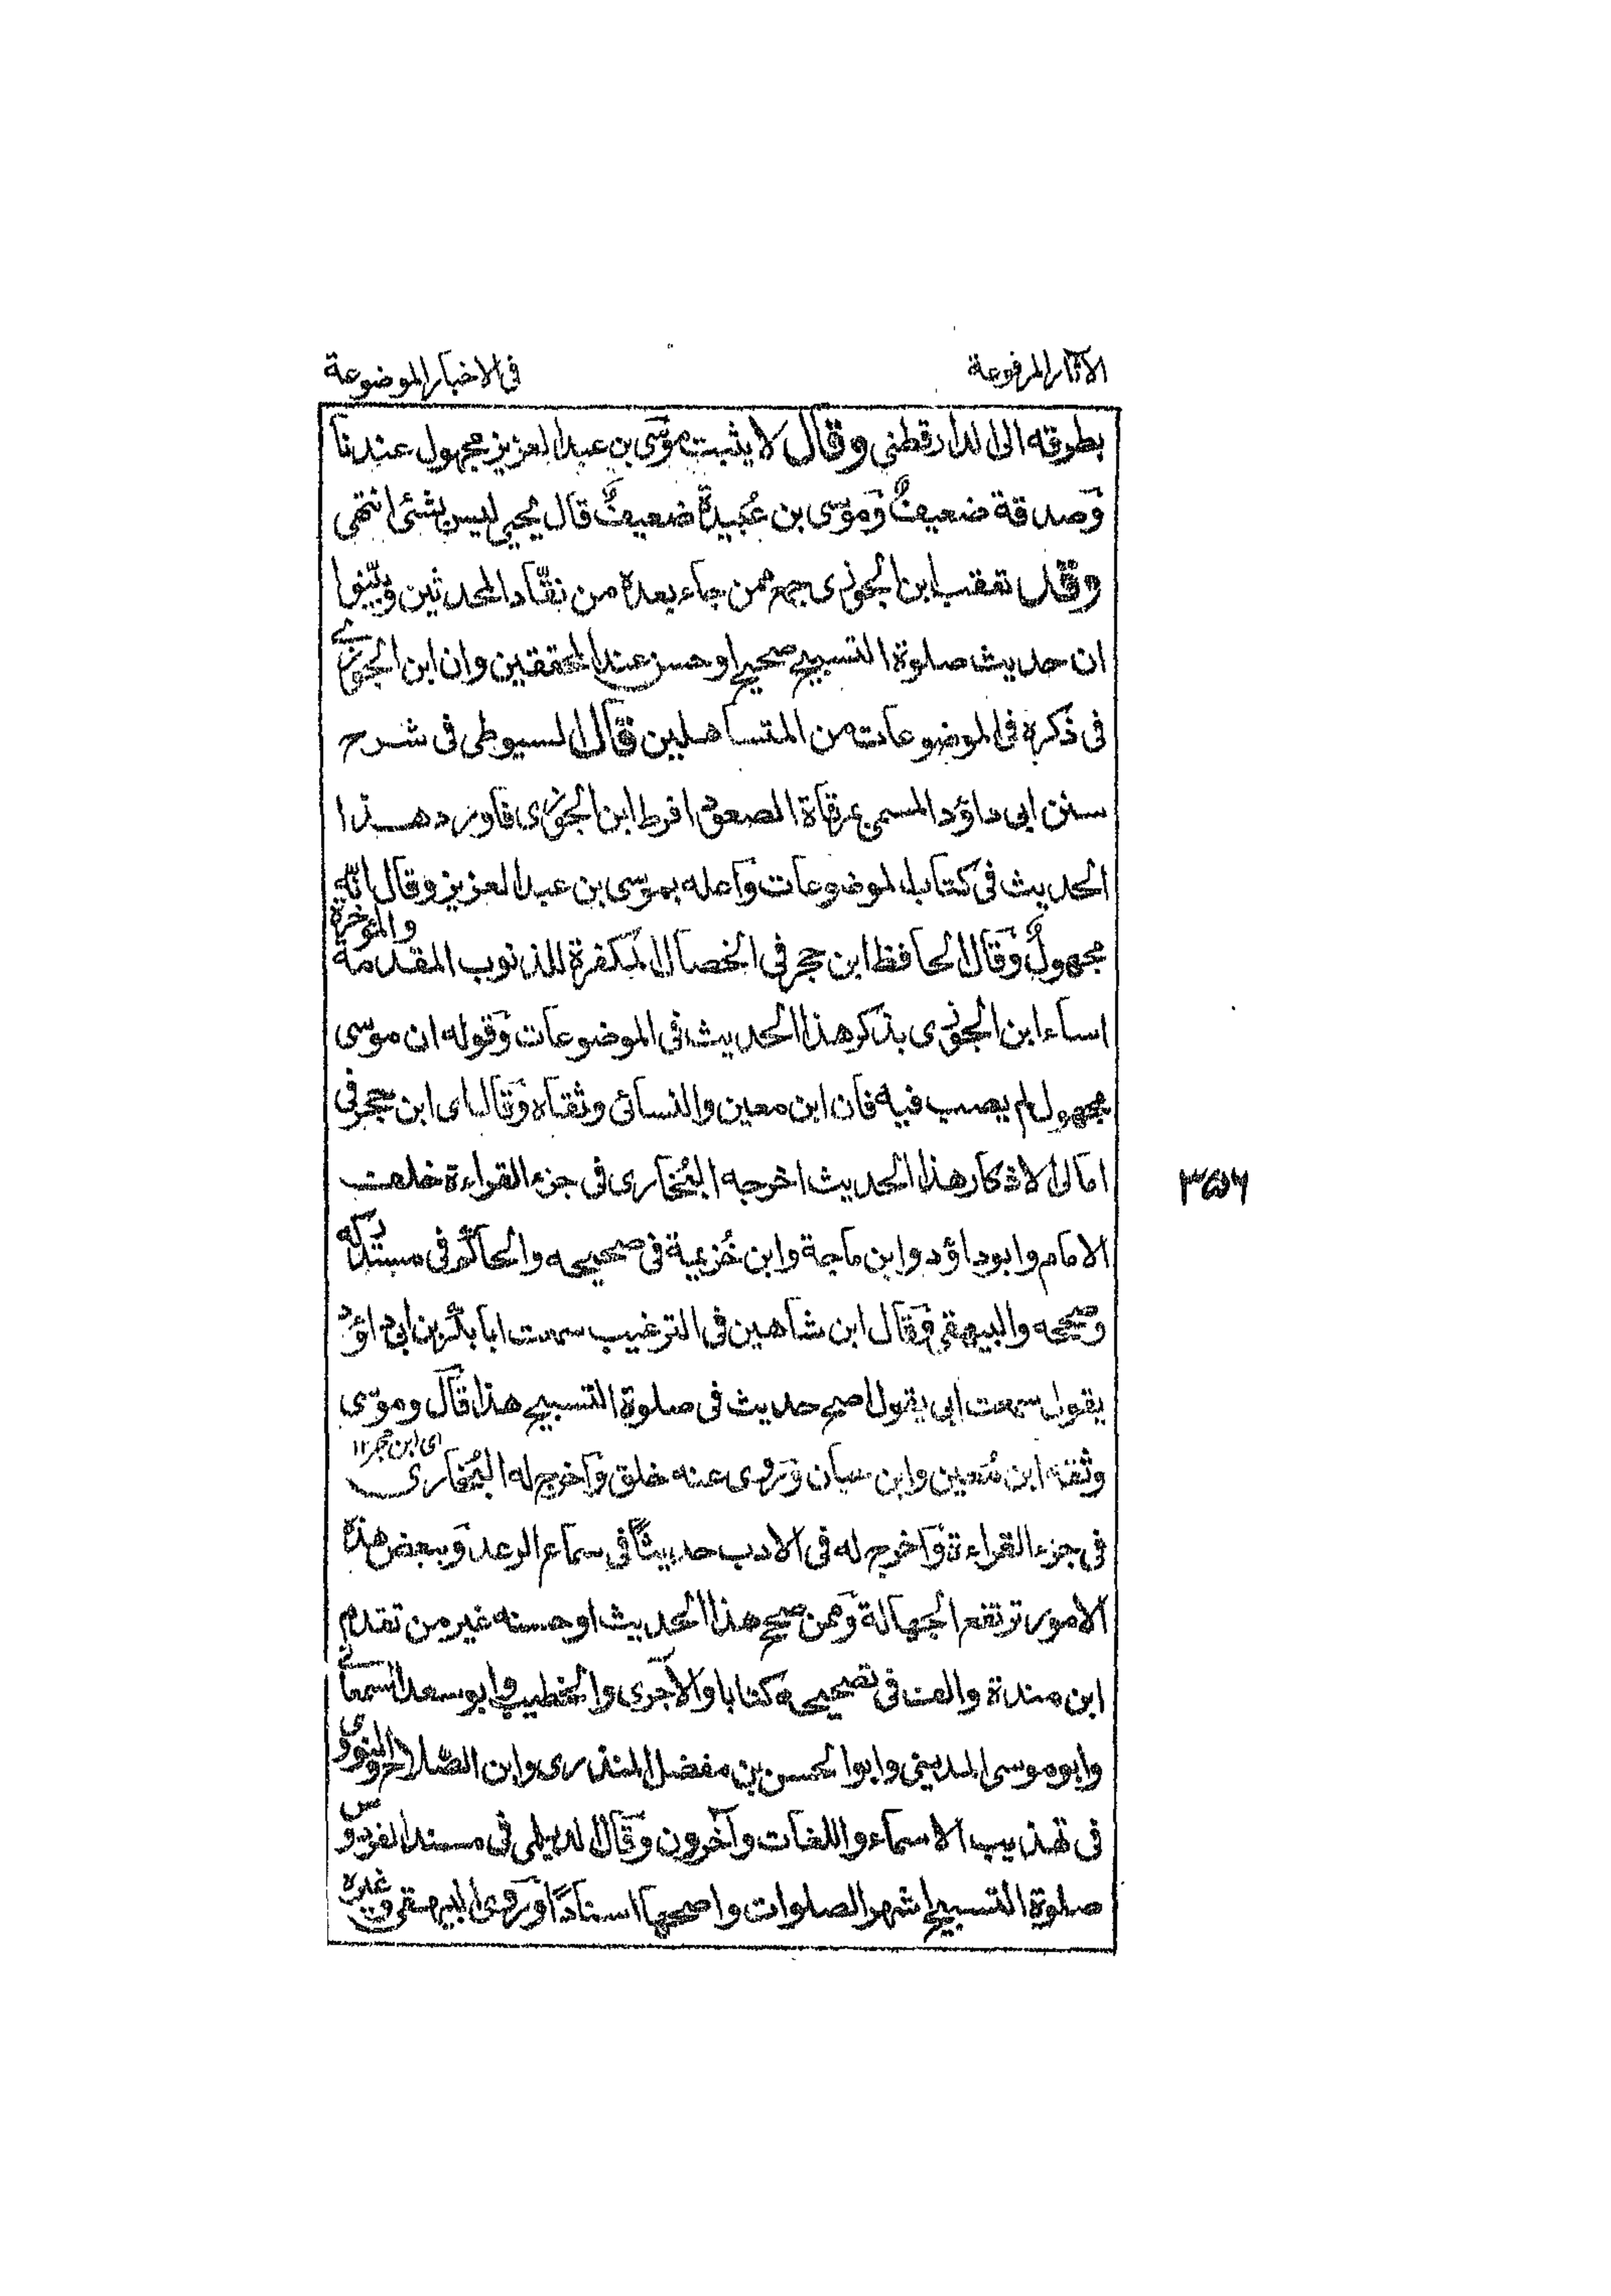 الآثار المرفوعة
فى الاخبار الموضوعة
بطرقه الى الدارقطنى وقال لا يثبت موسى بن عبد العزيز مجهول عندنا
وصدقة ضعيف وموسى بن عبيدة ضعيف قال يحيى ليس بشئ انتهى
وقد تعقب ابن الجوزى جمع ممن جاء بعده من نقاد المحدثين وبينوا
ان حديث صلوة التسبيح صحيح او حسن عند المحققين وان ابن الجوزى
فى ذكره فى الموضوعات من المتساهلين قال السيوطى فى شرح
سنن ابى داؤد المسمى بمرقاة الصعود افرط ابن الجوزى فاورد هذا
الحديث فى كتاب الموضوعات واعله بموسى بن عبد العزيز وقال انه
مجهول وقال الحافظ ابن حجر فى الخصال المكفرة للذنوب المقدمة والمؤخرة
اساء ابن الجوزى بذكر هذا الحديث فى الموضوعات وقوله ان موسى
مجهول لم يصب فيه فان ابن معين والنسائى وثقاه وقال اى ابن حجر فى
امالى الاذكار هذا الحديث اخرجه البُخارى فى جزء القراءة خلف
الامام وابو داؤد وابن ماجة وابن خُزيمة فى صحيحه والحاكم فى مستدركه
وصححه والبيهقى وقال ابن شاهين فى الترغيب سمعت ابا بكر بن ابى داؤد
يقول سمعت ابى يقول اصح حديث فى صلوة التسبيح هذا قال وموسى
اى ابن حجر ۱۲
وثقه ابن مُعين وابن حبان وروى عنه خلق واخرج له البُخارى
فى جزء القراءة واخرج له فى الادب حديثاً فى سماع الرعد وببعض هذه
الامور ترتفع الجهالة وممن صحح هذا الحديث او حسنه غير من تقدم
ابن مندة والف فى تصحيحه كتابا والآجرى والخطيب وابو سعد السمعانى
وابو موسى المدينى وابو الحسن بن مفضل المنذرى وابن الصّلاح والنووى
فى تهذيب الاسماء واللغات وآخرون وقال الديلمى فى مسند الفردوس
صلوة التسبيح اشهر الصلوات واصحها اسناداً وروى البيهقى وغيره
۳۵۶